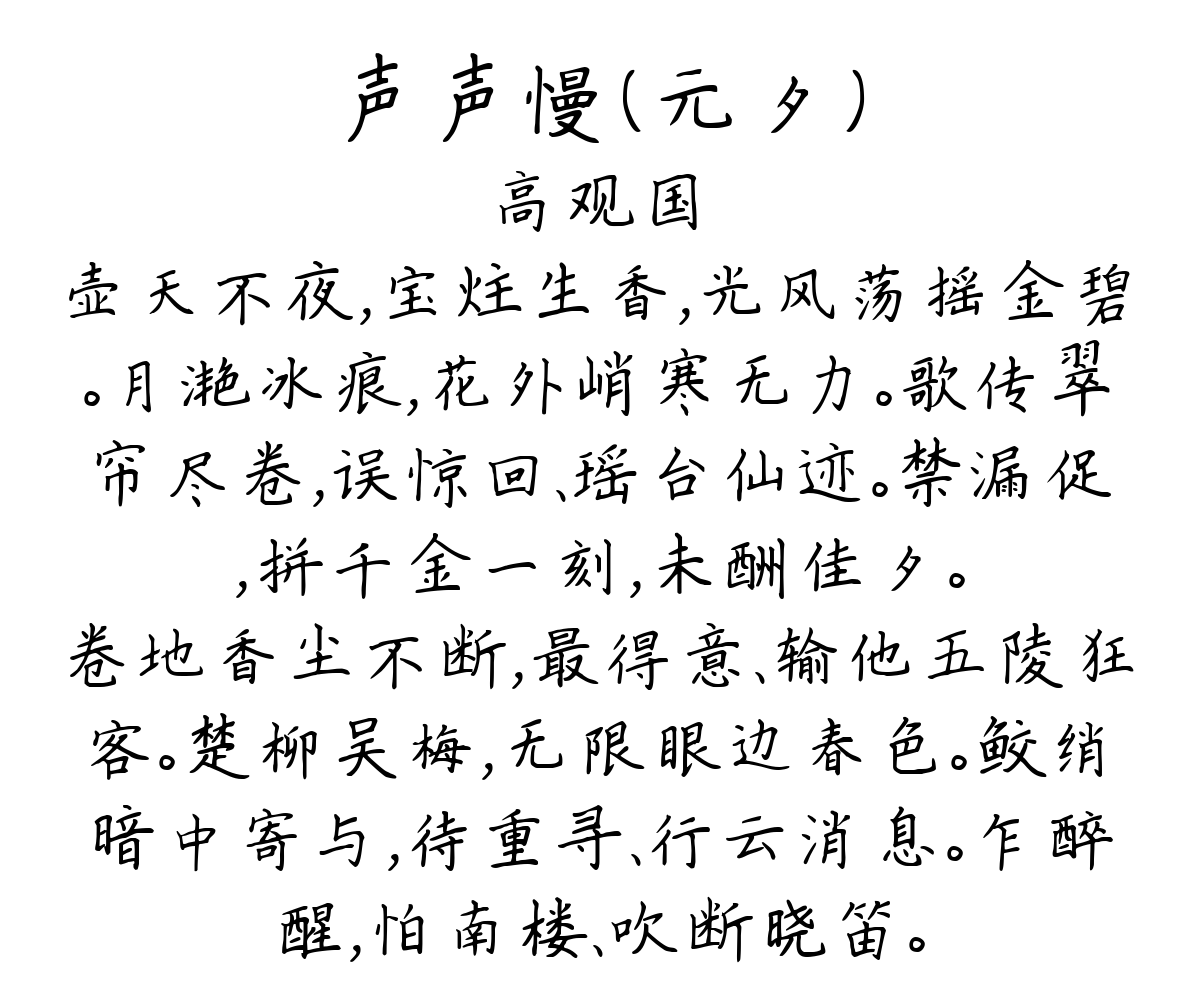 声声慢(元夕)
高观国
壶天不夜,宝炷生香,光风荡摇金碧
。月滟冰痕,花外峭寒无力。歌传翠
帘尽卷,误惊回、瑶台仙迹。禁漏促
,拼千金一刻,未酬佳夕。
卷地香尘不断,最得意、输他五陵狂
客。楚柳吴梅,无限眼边春色。鲛绡
暗中寄与,待重寻、行云消息。乍醉
醒,怕南楼、吹断晓笛。